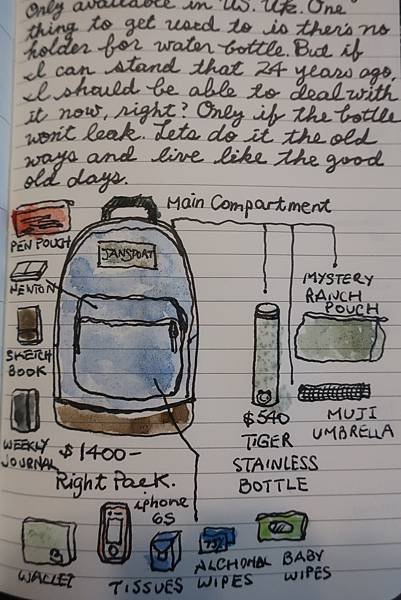 Only available in US. UK. One
thing to get used to is there's no
holder for water bottle. But if
I can stand that 24 years ago,
I should be able to deal with
it now, right? Only if the bottle
won't leak. Lets do it the old
ways and live like the good
old days.
Main Compartment
PEN POUCH
JANSPORT
MYSTERY
RANCH
POUCH
HENTON
SKETCH
BOOK
$540
TIGER
STAINLESS
BOTTLE
MUJI
UMBRELLA
WEEKLY
JOURNAL
$1400-
Right Pack.
iphone
6S
WALLET
TISSUES
ALCHOHAL
WIPES
BABY
WIPES